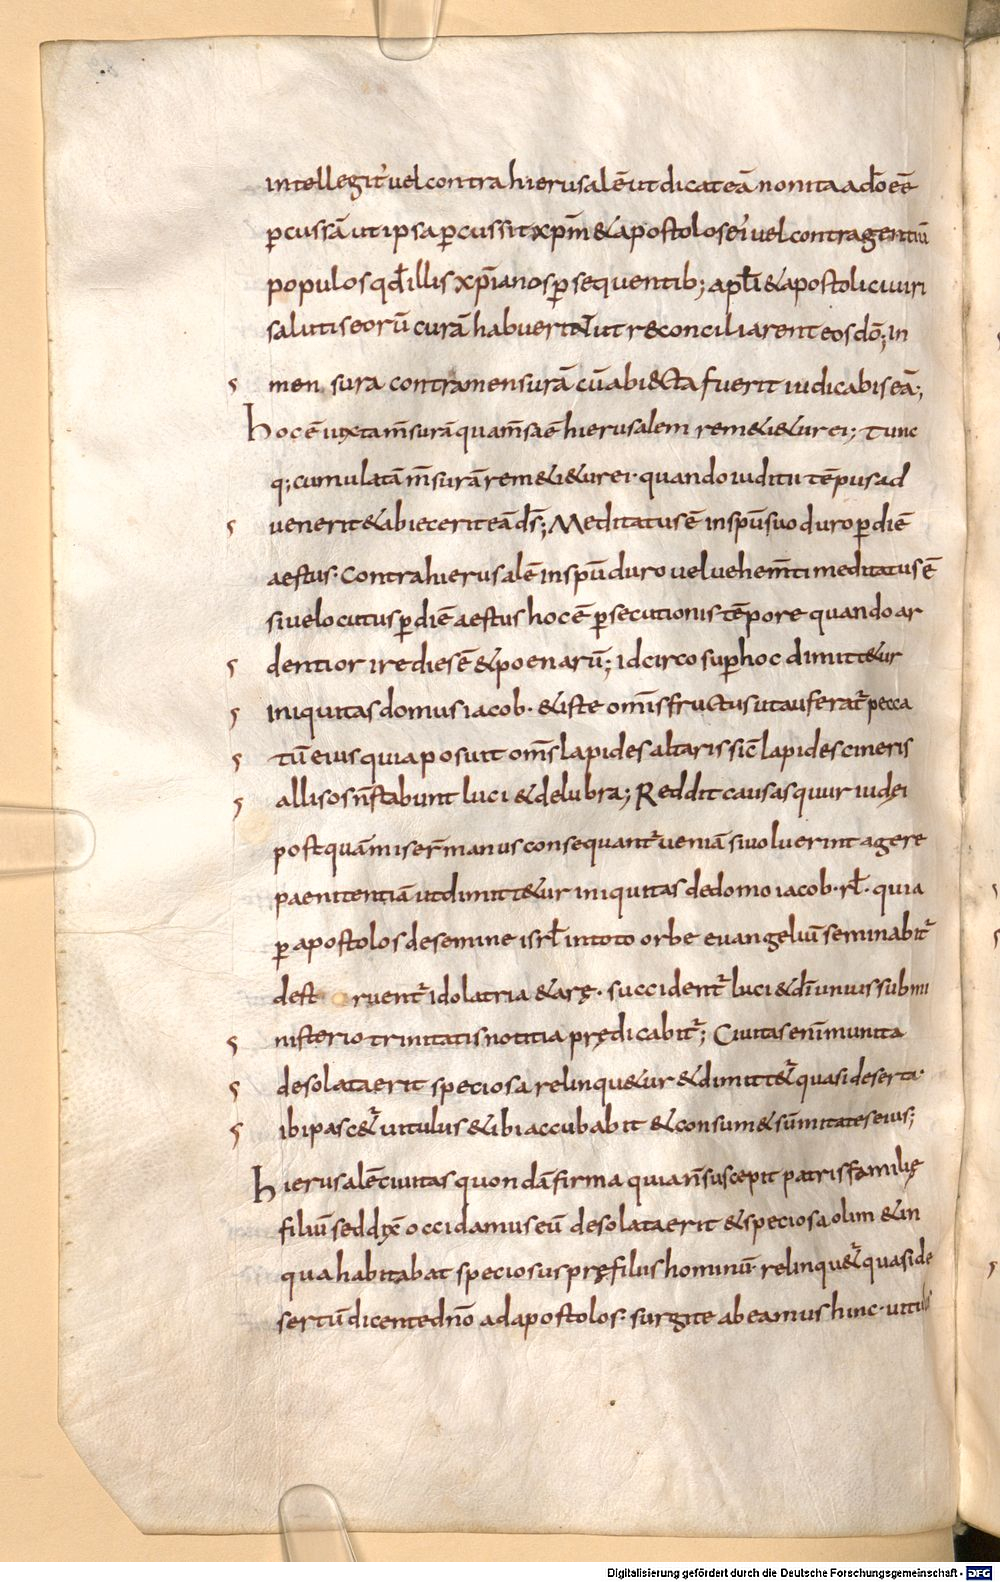 intellegit᷑ uel contra hierusalē ut dicat eā non ita a dō eē
ꝑcussā ut ipsa ꝑcussit xp̄m & apostolos ei᷑ uel contra gentiū
populos qđ illis xp̄ianos ꝑsequentib; apłi & apostolici uiri
saluti seorū curā habuerit uł ut reconciliarent eos dō; In
men sura contra mensurā cū abiecta fuerit iudicabis eā;
hoc ē iuxta m̄surā qua m̄sa ē hierusalem rem&i&ur ei; Tunc
q; cumulatā m̄surā rem&i&ur ei · quando iudicii tēpus ad
uenerit & abiecerit eā ds̄; Meditatus ē in sp̄u suo duro ꝑ diē
aestus · Contra hierusalē in sp̄u duro uel uehem̄ti meditatus ē
siue locutus ꝑ diē aestus hoc ē ꝑsecutionis tēpore quando ar
dentior ire dies ē & poenarū; idcirco suꝑ hoc dimitt&ur
iniquitas domus iacob · & iste om̄is fructus ut auferat᷑ pecca
tū eius quia posuit om̄s lapides altaris sic̄ lapides cineris
allisos n̄ stabunt luci & delubra; Reddit causas quur iudęi
postquā miser̄ manus consequant᷑ ueniā si uoluerint agere
paenitentiā ut dimitt&ur iniquitas de domo iacob · rł · quia
ꝑ apostolos de semine isrł in toto orbe euangeliū seminabit᷑
dest ruent᷑ idolatria & arę · succident᷑ luci & dī unius sub mi
nisterio trinitatis notitia prędicabit᷑; Ciuitas enī munita
desolata erit speciosa relinqu&ur & dimitt&᷑ quasi deserta ·
ibi pasc&᷑ uitulus & ibi accubabit & consum& sūmitates eius;
hierusalē ciuitas quondā firma quia n̄ suscepit patris familię
filiū sed dix̄ occidamus eū desolata erit & speciosa olim & in
qua habitabat speciosus prę filiis hominū · relinqu&᷑ quasi de
sertū dicente dn̄o ad apostolos · surgite abeamus hinc · uitulus
Digitalisierung gefördert durch die Deutsche Forschungsgemeinschaft - DFG